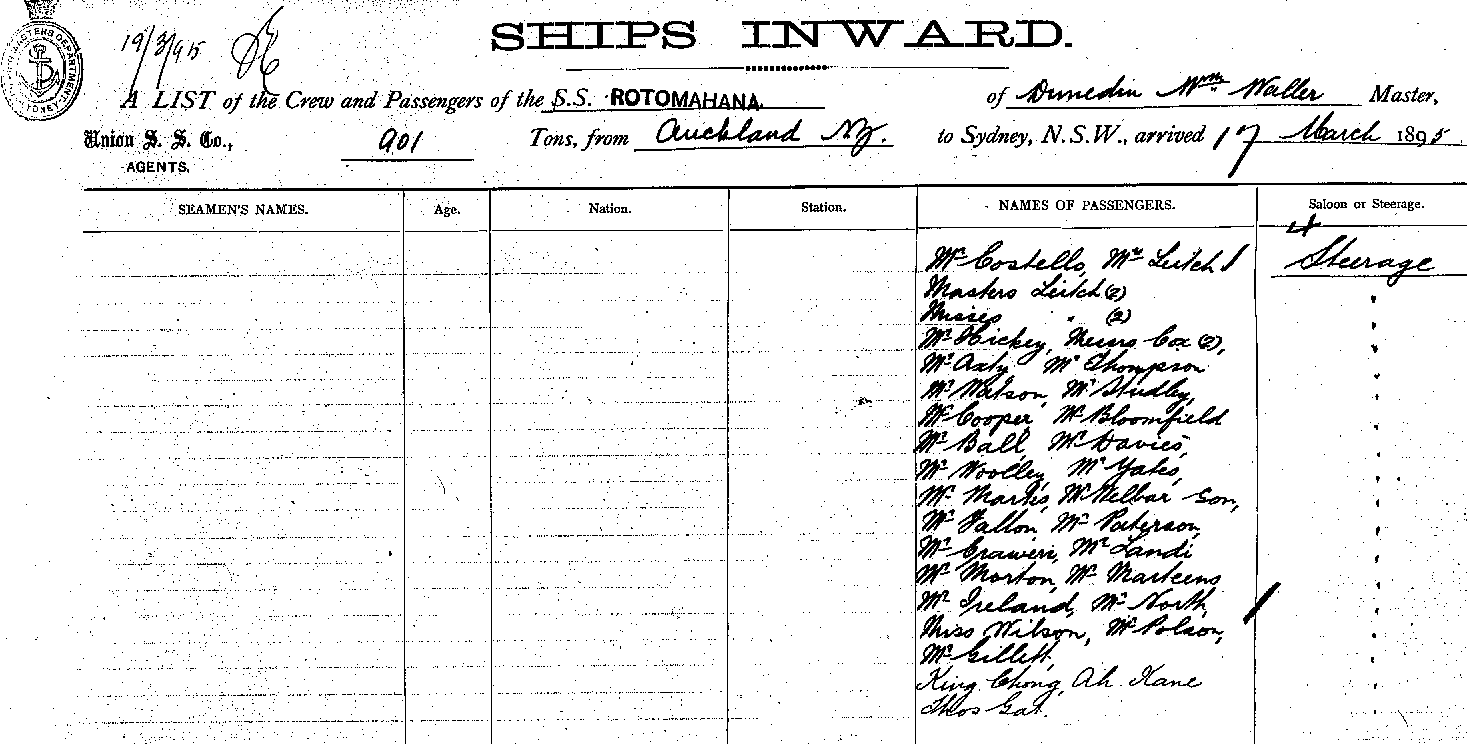 19/3/95
SHIPS INWARD.
A LIST of the Crew and Passengers of the S.S. ROTOMAHANA. of Dunedin Wm Waller Master,
Union S. S. Co., 901 Tons, from Auckland NZ. to Sydney, N.S.W., arrived 17 March 1895
AGENTS.
SEAMEN'S NAMES. Age. Nation. Station. NAMES OF PASSENGERS. Saloon or Steerage.
Mr Costello, Mrs Leitch Steerage
Masters Leitch (2) "
Misses " (2) "
Mr Hickey, Messrs Cox (2), "
Mr Axty Mr Thompson "
Mr Watson, Mr Studley, "
Mr Cooper, Mr Bloomfield "
Mr Ball, Mr Davies, "
Mr Woolley, Mr Yates, "
Mr Marks, Mr Welbar Son, "
Mr Fallon, Mr Paterson, "
Mr Mr Landi "
Mr Morton, Mr Marteens "
Mr Ireland, Mr North, "
Miss Wilson, Mr Polson, "
Mr Gillett, "
King Chong, Ah Kane "
Thos Gat. "